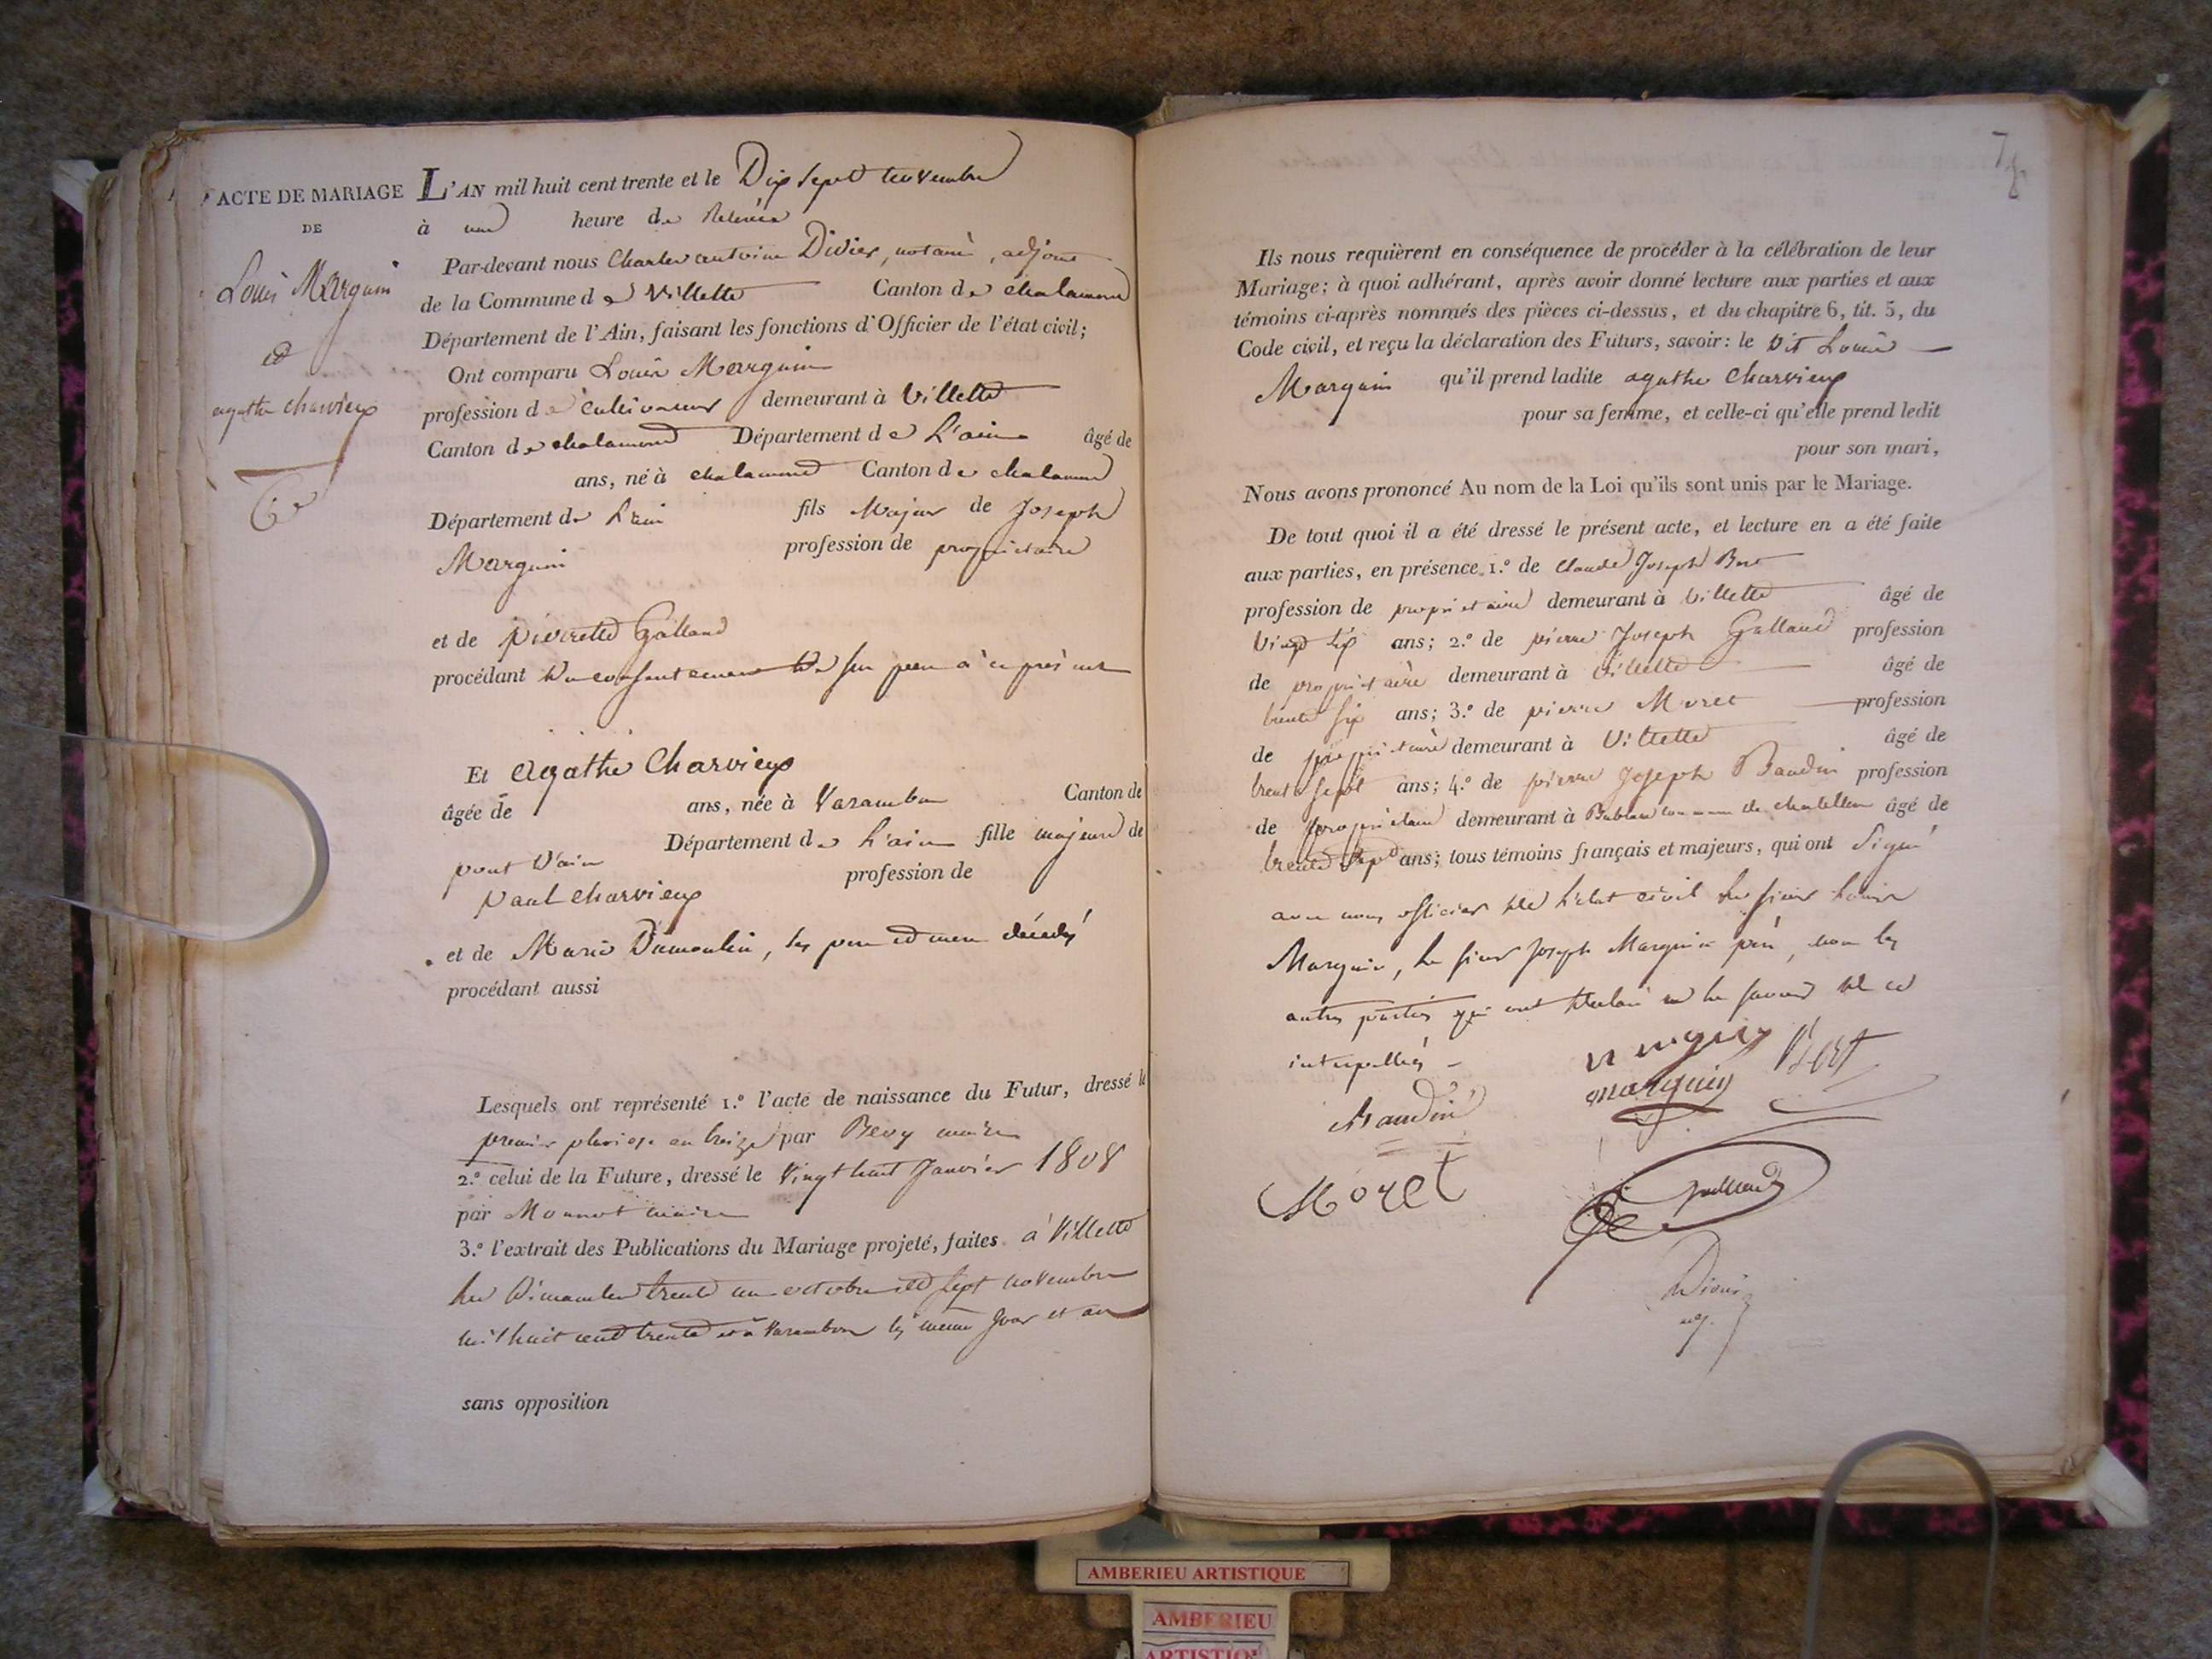 ACTE DE MARIAGE
DE
Louis Marguin
et
agathe charvieux
L'AN mil huit cent trente et le Dix sept novembre
à une heure de Relevée
Par-devant nous Charles antoine Didier, notaire, adjoint
de la Commune de Villette Canton de chalamond
Département de l'Ain, faisant les fonctions d'Officier de l'état civil;
Ont comparu Louis Marguin
profession de cultivateur demeurant à Villette
Canton de chalamond Département de L'ain âgé de
ans, né à chalamond Canton de chalamond
Département de L'ain fils Majeur de Joseph
Marguin profession de propriétaire
et de pierrette Galland
procédant Du consentement De son pere à ce présent
Et agathe Charvieux
âgée de ans, née à Varambon Canton de
pont D'ain Département de L'ain fille majeure de
paul charvieux profession de
et de Marie Dumoulin, ses pere et mere décédés
procédant aussi
Lesquels ont représenté 1.º l'acte de naissance du Futur, dressé le
premier pluviose an treize par Bevy maire
2.º celui de la Future, dressé le Vingt huit Janvier 1808
par Monnot maire
3.º l'extrait des Publications du Mariage projeté, faites à Villette
les Dimanches trente un octobre et sept novembre
mil huit cent trente et à Varambon les meme Jour et an
sans opposition
78
Ils nous requièrent en conséquence de procéder à la célébration de leur
Mariage; à quoi adhérant, après avoir donné lecture aux parties et aux
témoins ci-après nommés des pièces ci-dessus, et du chapitre 6, tit. 5, du
Code civil, et reçu la déclaration des Futurs, savoir: le Dit Louis
Marguin qu'il prend ladite agathe Charvieux
pour sa femme, et celle-ci qu'elle prend ledit
pour son mari,
Nous avons prononcé Au nom de la Loi qu'ils sont unis par le Mariage.
De tout quoi il a été dressé le présent acte, et lecture en a été faite
aux parties, en présence 1.º de Claude Joseph Bort
profession de propriétaire demeurant à Villette âgé de
Vingt six ans; 2.º de pierre Joseph Galland profession
de propriétaire demeurant à Villette âgé de
trente six ans; 3.º de pierre Moret profession
de propriétaire demeurant à Villette âgé de
trente sept ans; 4.º de pierre Joseph Baudin profession
de propriétaire demeurant à commune de chatillon âgé de
trente sept ans; tous témoins français et majeurs, qui ont Signé
avec nous officier De L'état civil Le sieur Louis
Marguin, Le sieur Joseph Marguin pere, non les
autres parties qui ont Déclaré ne le savoir De ce
interpellés
marguin Bort
Baudin marguin
Moret
galland
Didier
adj.
AMBERIEU ARTISTIQUE
AMBERIEU
ARTISTIQ